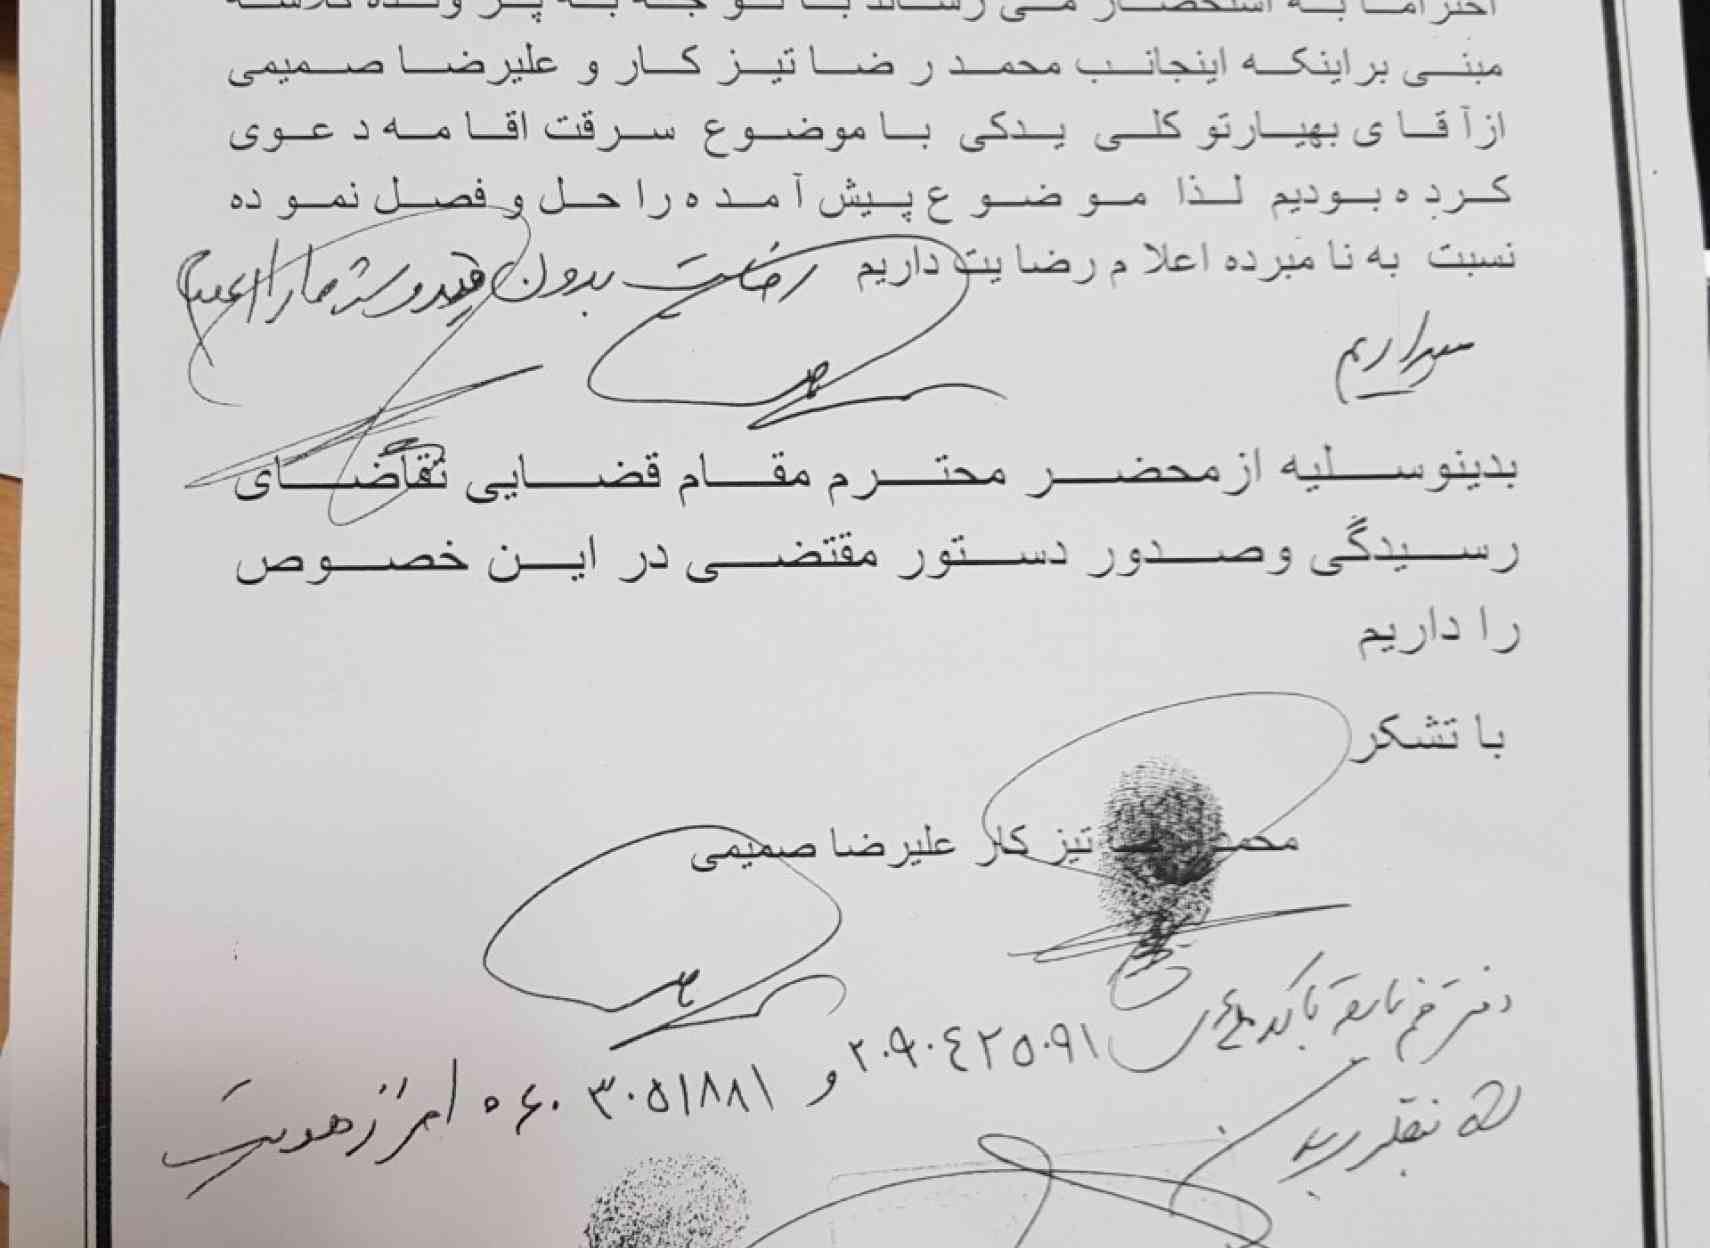 احتراما به استحضار می رساند با توجه به پرونده کلاسه
مبنی براینکه اینجانب محمد رضا تیز کار و علیرضا صمیمی
ازآقای بهیارتو کلی یدکی با موضوع سرقت اقامه دعوی
کرده بودیم لذا موضوع پیش آمده را حل و فصل نموده
نسبت به نامبرده اعلام رضایت داریم رضایت بدون قید و شرط ما را اعلام
میداریم
بدینوسلیه ازمحضر محترم مقام قضایی تقاضای
رسیدگی وصدور دستور مقتضی در این خصوص
را داریم
با تشکر
محمد رضا تیز کار علیرضا صمیمی
دفتر با کد ملی ۲۰۹۰۴۲۵۰۹۱
و ۳۰۵۱۸۸۱ ۰۶۰۵ احراز هویت